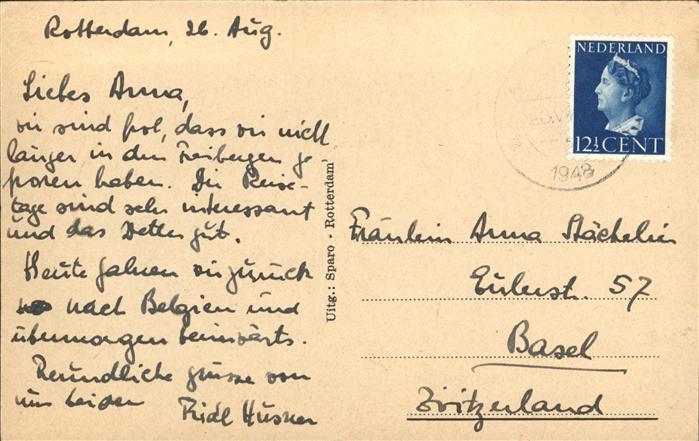 Rotterdam, 26. Aug.
Liebes Anna,
wir sind froh, dass wir nicht
länger in den Freibergen ge
froren haben. Die Reise-
tage sind sehr interessant
und das Wetter gut.
Heute fahren wir zurück
nach Belgien und
übermorgen heimwärts.
Freundliche Grüsse von
uns beiden
Uitg.: Sparo - Rotterdam
NEDERLAND
12½ CENT
1948
Fräulein Anna Stächelin
Eulerstr. 57
Basel
Zwitzerland